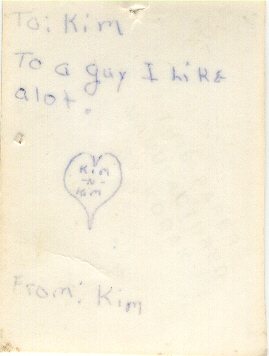 To: Kim
To a guy I like
alot.
Kim
-to-
Kim
From: Kim